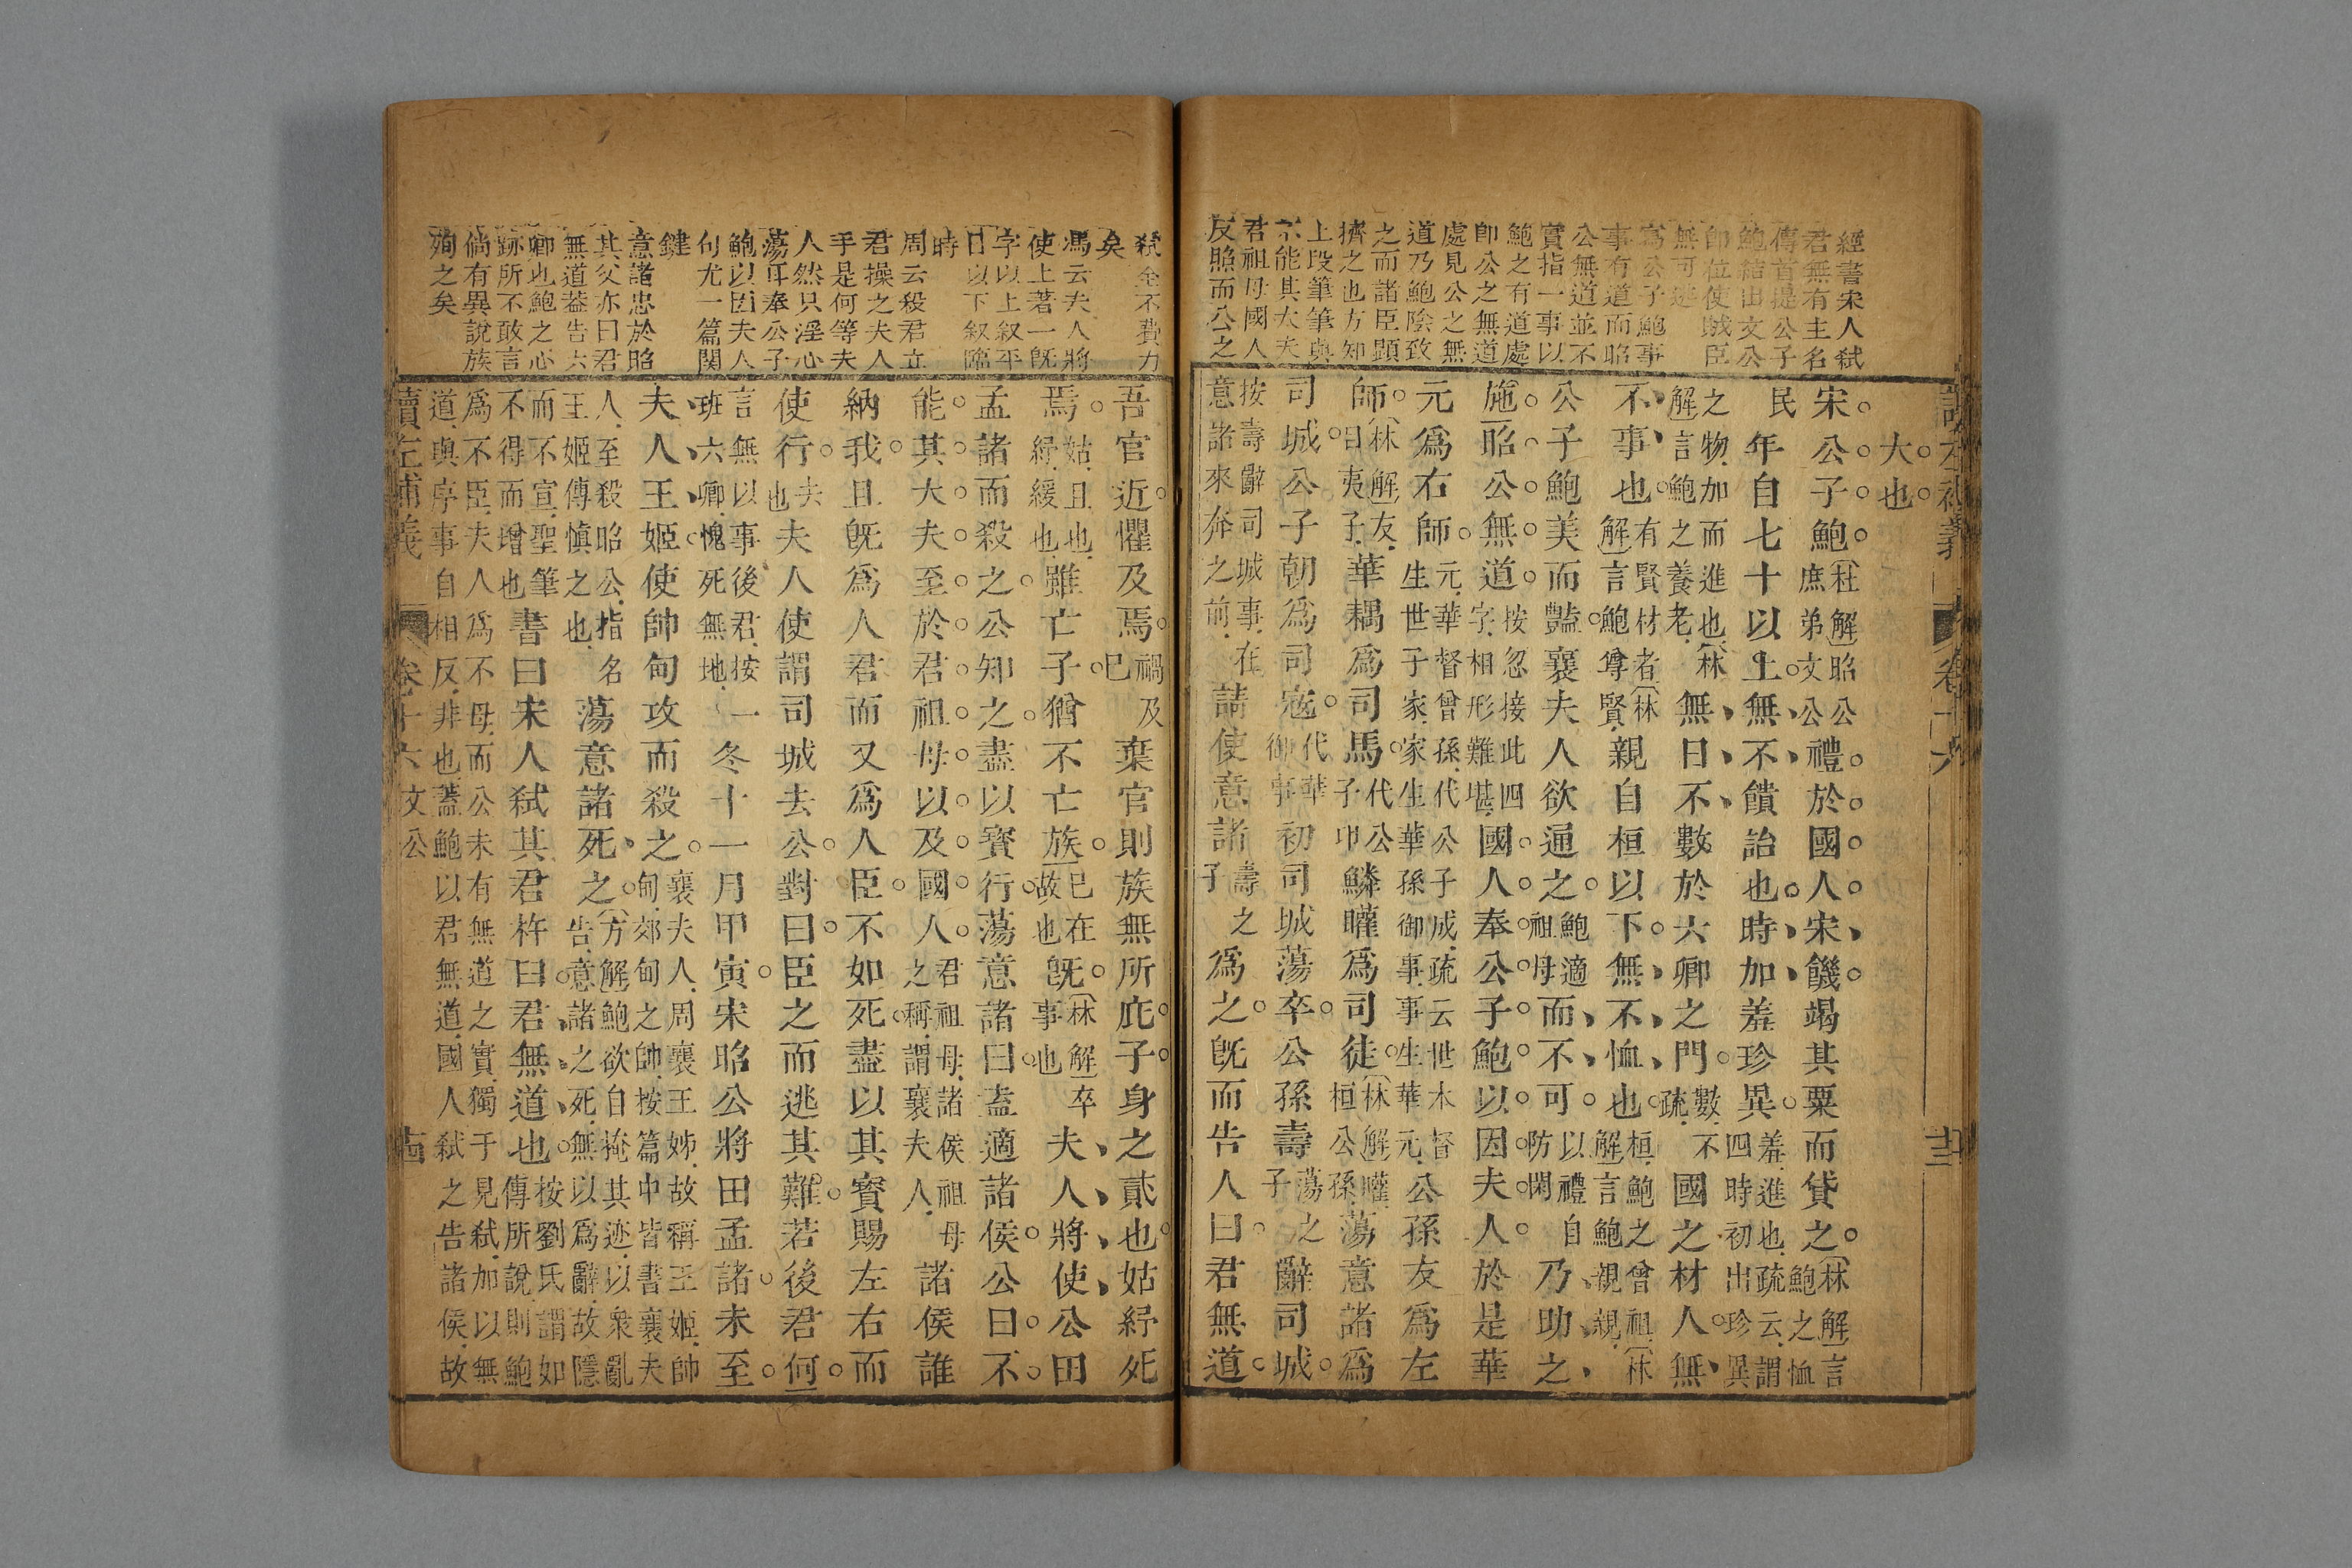 經書宋人弑
君無有主名
傳首提公子
鮑結出文公
卽位使賊臣
無可逃
寫公子鮑事
事有道而昭
公無道並不
實指一事以
鮑之有道處
卽公之無道
處見公之無
道乃鮑陰致
之而諸臣顯
擠之也方知
上段筆筆與
不能其大夫
君祖母國人
反照而公之
大也
宋公子鮑(杜解)昭公庶弟文公禮於國人宋饑竭其粟而貸之(林解)言鮑之恤
民年自七十以上無不饋詒也時加羞珍異羞進也疏云謂四時初出珍異
之物加而進也(林解)言鮑之養老無日不數於六卿之門數不疏國之材人無
不事也有賢材者(林解)言鮑尊賢親自桓以下無不恤也桓鮑之曾祖(林解)言鮑親親
公子鮑美而豔襄夫人欲通之鮑適祖母而不可以禮自防閑乃助之
施昭公無道按忽接此四字相形難堪國人奉公子鮑以因夫人於是華
元爲右師元華督曾孫代公子成疏云世本督生世子家家生華孫御事事生華元公孫友爲左
師(林解)友目夷子華耦爲司馬代公子卬鱗鱹爲司徒(林解)鱹桓公孫蕩意諸爲
司城公子朝爲司寇代華御事初司城蕩卒公孫壽蕩之子辭司城
按壽辭司城事在意諸來奔之前請使意諸壽之子爲之旣而告人曰君無道
讀左補義
卷十六
十三
弑全不費力
矣
馮云夫人將
使上著一旣
字以上叙平
日以下叙臨
時
周云殺君立
君操之夫人
手是何等夫
人然只淫心
蕩耳奉公子
鮑以因夫人
句尤一篇関
鍵
意諸忠於昭
其父亦曰君
無道蓋告六
卿也鮑之心
跡所不敢言
倘有異說族
殉之矣
吾官近懼及焉禍及已棄官則族無所庇子身之貳也姑紓死
焉姑且也紓緩也雖亡子猶不亡族已在故也旣(林解)卒事也夫人將使公田
孟諸而殺之公知之盡以寶行蕩意諸曰盍適諸侯公曰不
能其大夫至於君祖母以及國人君祖母諸侯祖母之稱謂襄夫人諸侯誰
納我且旣爲人君而又爲人臣不如死盡以其寶賜左右而
使行夫也夫人使謂司城去公對曰臣之而逃其難若後君何
言無以事後君按班六卿愧死無地一冬十一月甲寅宋昭公將田孟諸未至
夫人王姬使帥甸攻而殺之襄夫人周襄王姊故稱王姬帥甸郊甸之帥按篇中皆書襄夫
人至殺昭公指名王姬傳愼之也蕩意諸死之(方解)鮑欲自掩其迹以衆亂告意諸之死無以爲辭故隱
而不宣聖筆不得而增也書曰宋人弑其君杵臼君無道也按劉氏謂如傳所說則鮑
爲不臣夫人爲不母而公未有無道之實獨于見弑加以無
道與序事自相反非也蓋鮑以君無道國人弑之告諸侯故
讀左補義
卷十六
文公
十四